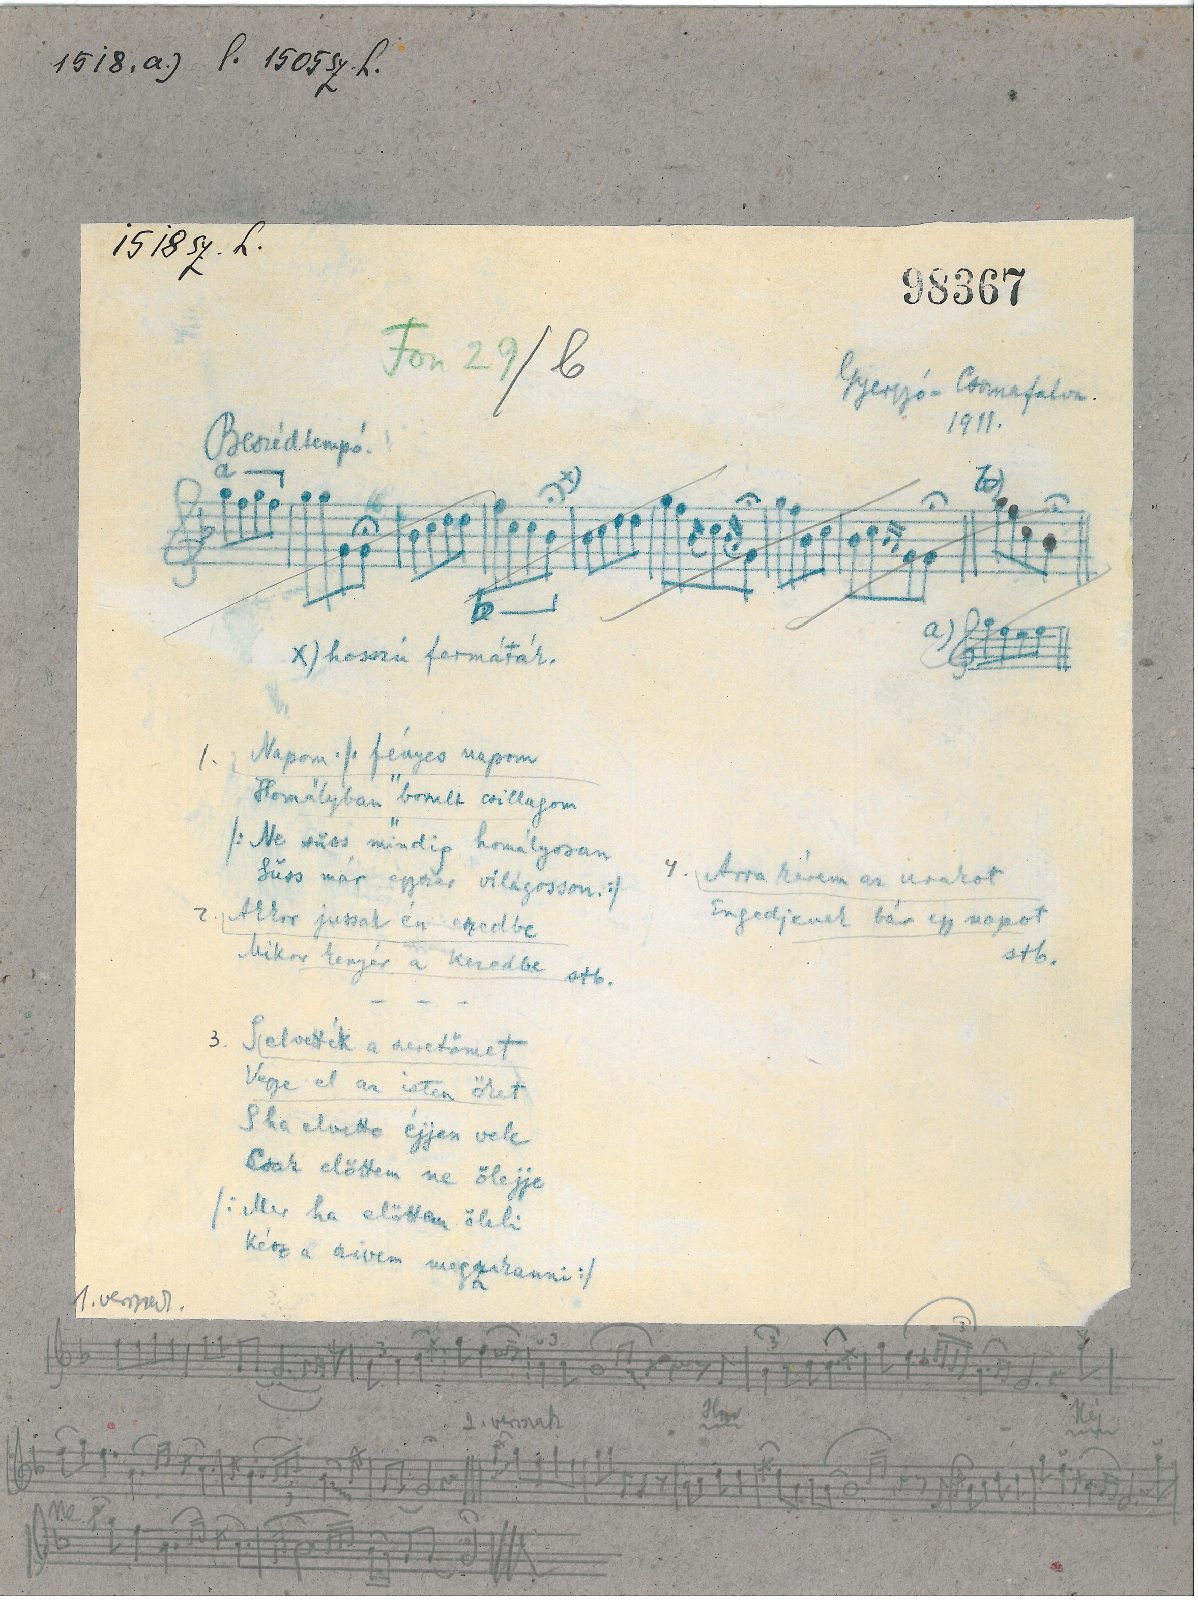 1518.a.) l. 1505 sz. h.
1518 sz. h.
98367
Fon 29/b
Gyergyó-Csomafalva.
1911.
Beszédtempó.
a
x)
b)
b
a)
x) hosszú fermáták.
1. Napom ·/· fényes napom
Homályban borult csillagom
/: Ne süss mindig homályosan
Süss már egyszer világosson :/
2. Akkor jussak én eszedbe
Mikor kenyér a kezedbe stb.
- - -
3. Selvették a szeretőmet
Vegye el az isten őket
S ha elvette éjjen vele
Csak előttem ne ölejje
/: Mer ha előttem öleli
Kész a szivem megszakanni :/
4. Arra kérem az urakot
Engedjenek bár egy napot
stb.
1. versszak.
3
3
3
2. versszak
ne